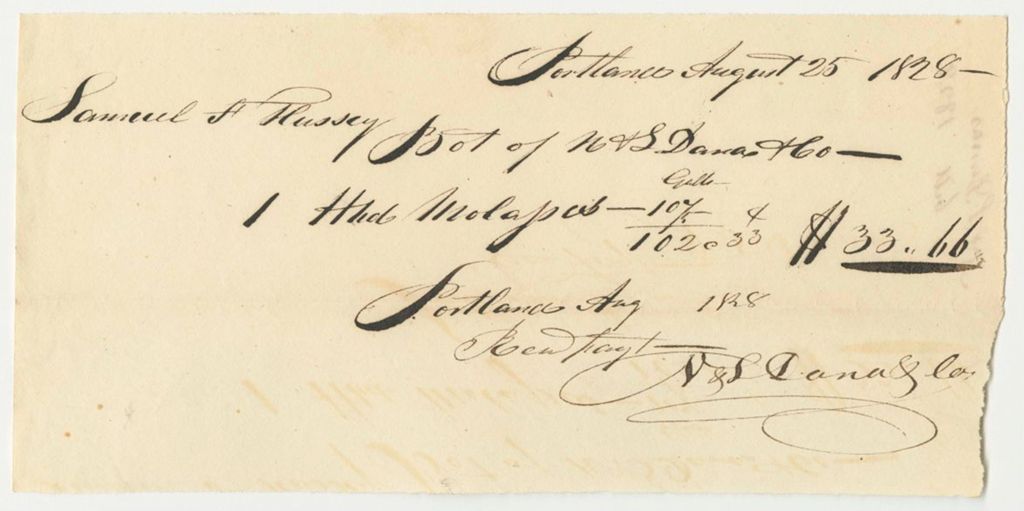 Portland August 25 1828 —
Samuel F Hussey
Bot of N & L Dana & Co —
Galls —
1 Hhd Molasses — 107
5 ¢
102 @ 33 $ 33 .. 66
Portland Aug 1828
Recd payt —
N & L Dana & Co